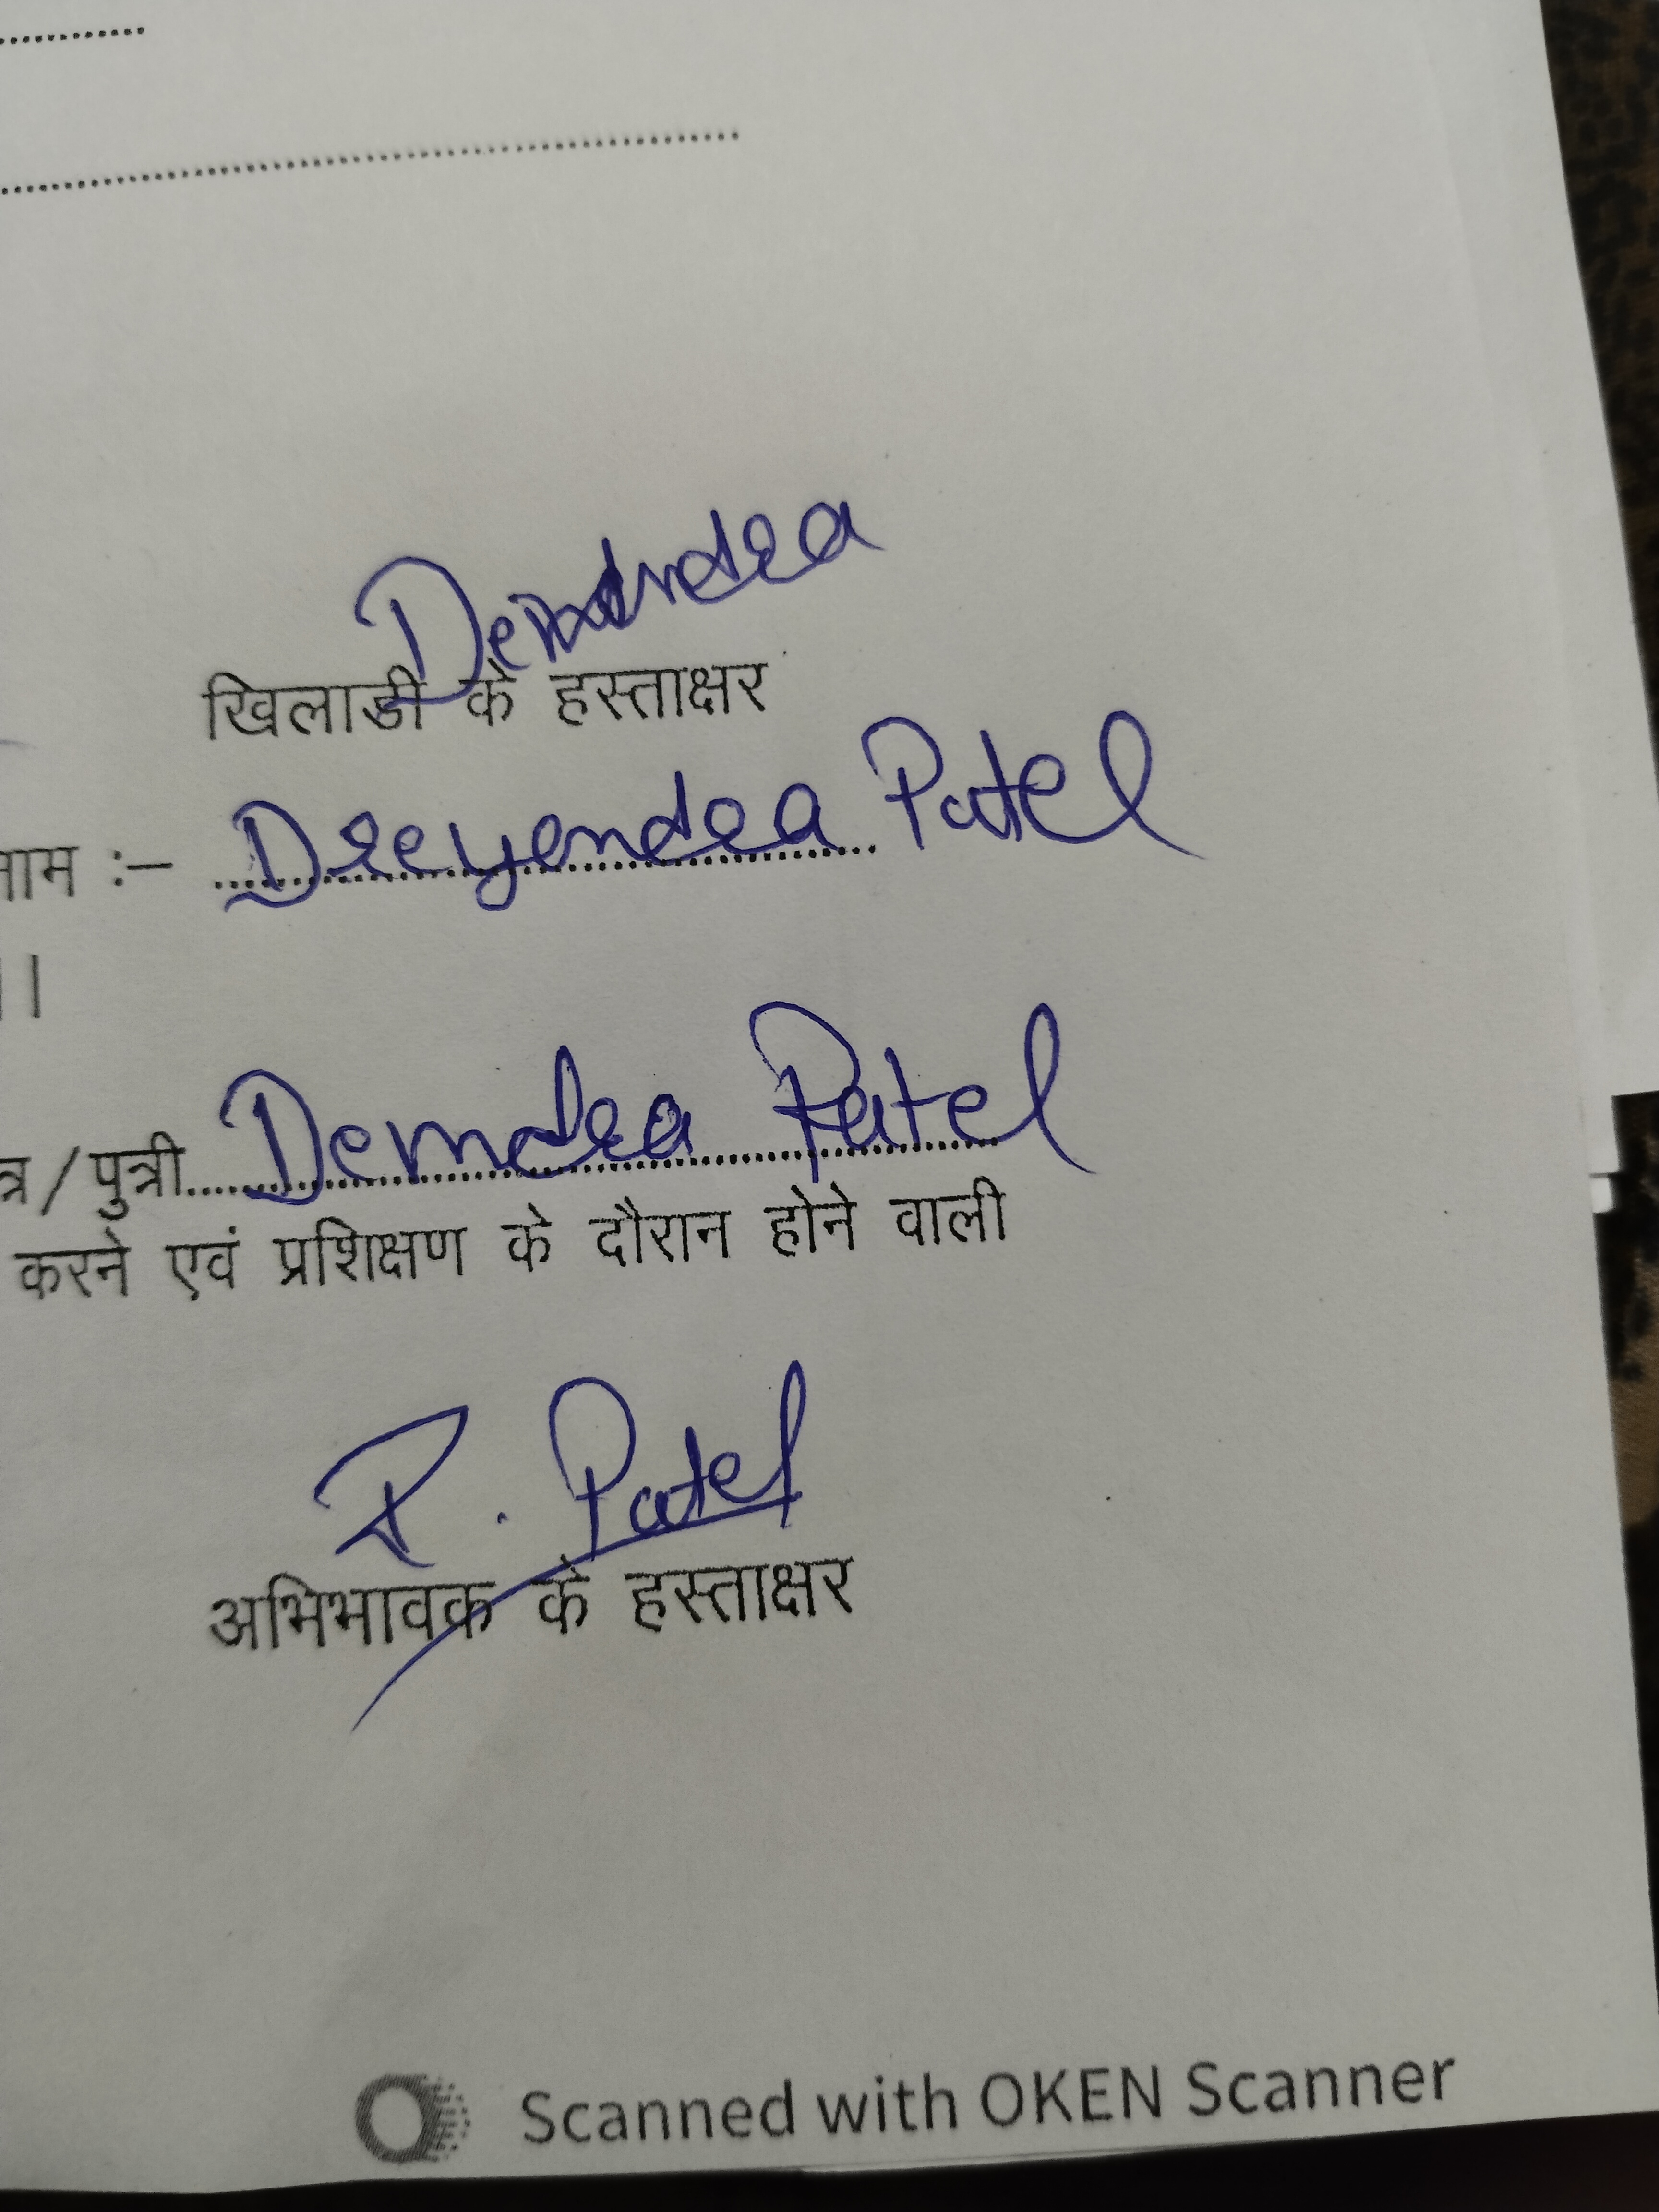 खिलाडी के हस्ताक्षर
नाम :- Patel
।।
त्र/पुत्री Patel
करने एवं प्रशिक्षण के दौरान होने वाली
R. Patel
अभिभावक के हस्ताक्षर
Scanned with OKEN Scanner